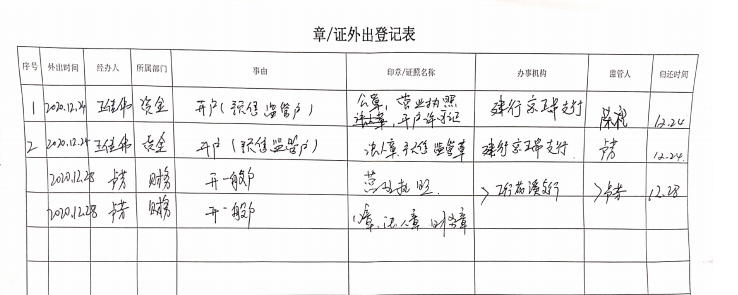 章/证外出登记表
序号 外出时间 经办人 所属部门 事由 印章/证照名称 办事机构 监管人 归还时间
1 2020.12.24 王佳伟 资金 开户(预售监管户) 公章, 营业执照 法人章, 开户许可证 建行 支行 12.24
2 2020.12.24 王佳伟 资金 开户(预售监管户) 法人章 预售监管章 建行 支行 卢芳 12.24.
2020.12.28 卢芳 财务 开一般户 营业执照. 工行 支行 卢芳 12.28
2020.12.28 卢芳 财务 开一般户 公章, 法人章 财务章